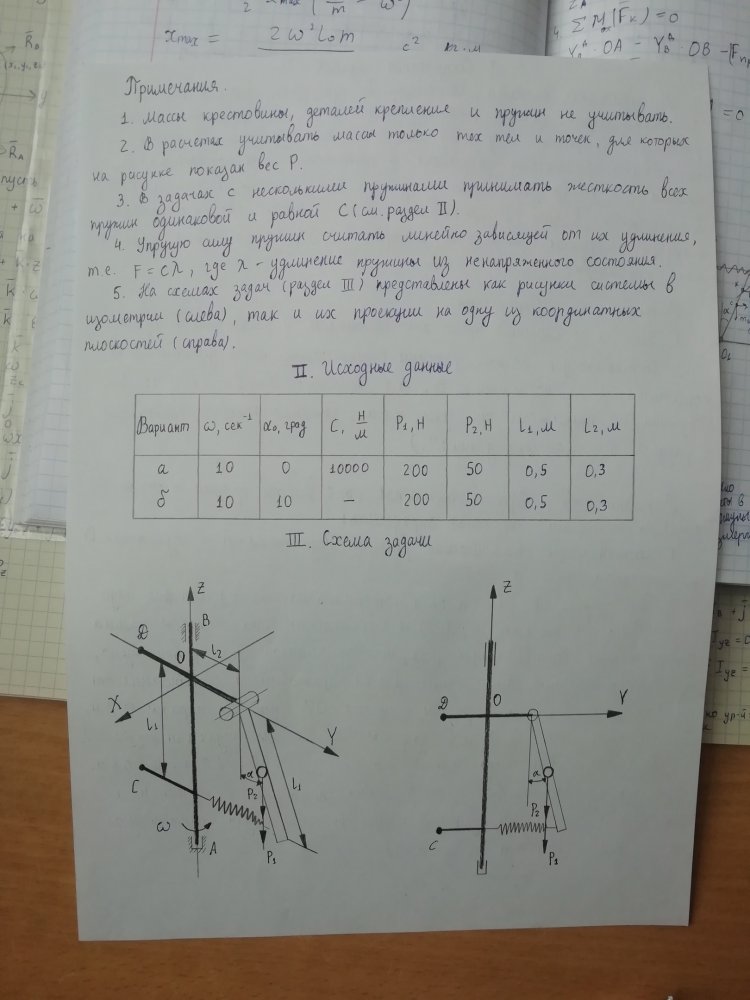 Xmax = 2ω²L₀m
ΣM (F̄к) = 0
Примечания.
1. Массы крестовины, деталей крепления и пружин не учитывать.
2. В расчетах учитывать массы только тех тел и точек, для которых
на рисунке показан вес P.
3. В задачах с несколькими пружинами принимать жесткость всех
пружин одинаковой и равной C (см. раздел II).
4. Упругую силу пружин считать линейно зависящей от их удлинения,
т.е. F = cλ, где λ - удлинение пружины из ненапряженного состояния.
5. На схемах задач (раздел III) представлены как рисунки системы в
изометрии (слева), так и их проекции на одну из координатных
плоскостей (справа).
II. Исходные данные
Вариант ω, сек⁻¹ α₀, град C, Н/м P₁, Н P₂, Н L₁, м L₂, м
а 10 0 10000 200 50 0,5 0,3
б 10 10 — 200 50 0,5 0,3
III. Схема задачи
Z B D O l₂ X l₁ Y l₁ C α P₂ ω A P₁
Z D O Y α P₂ C P₁